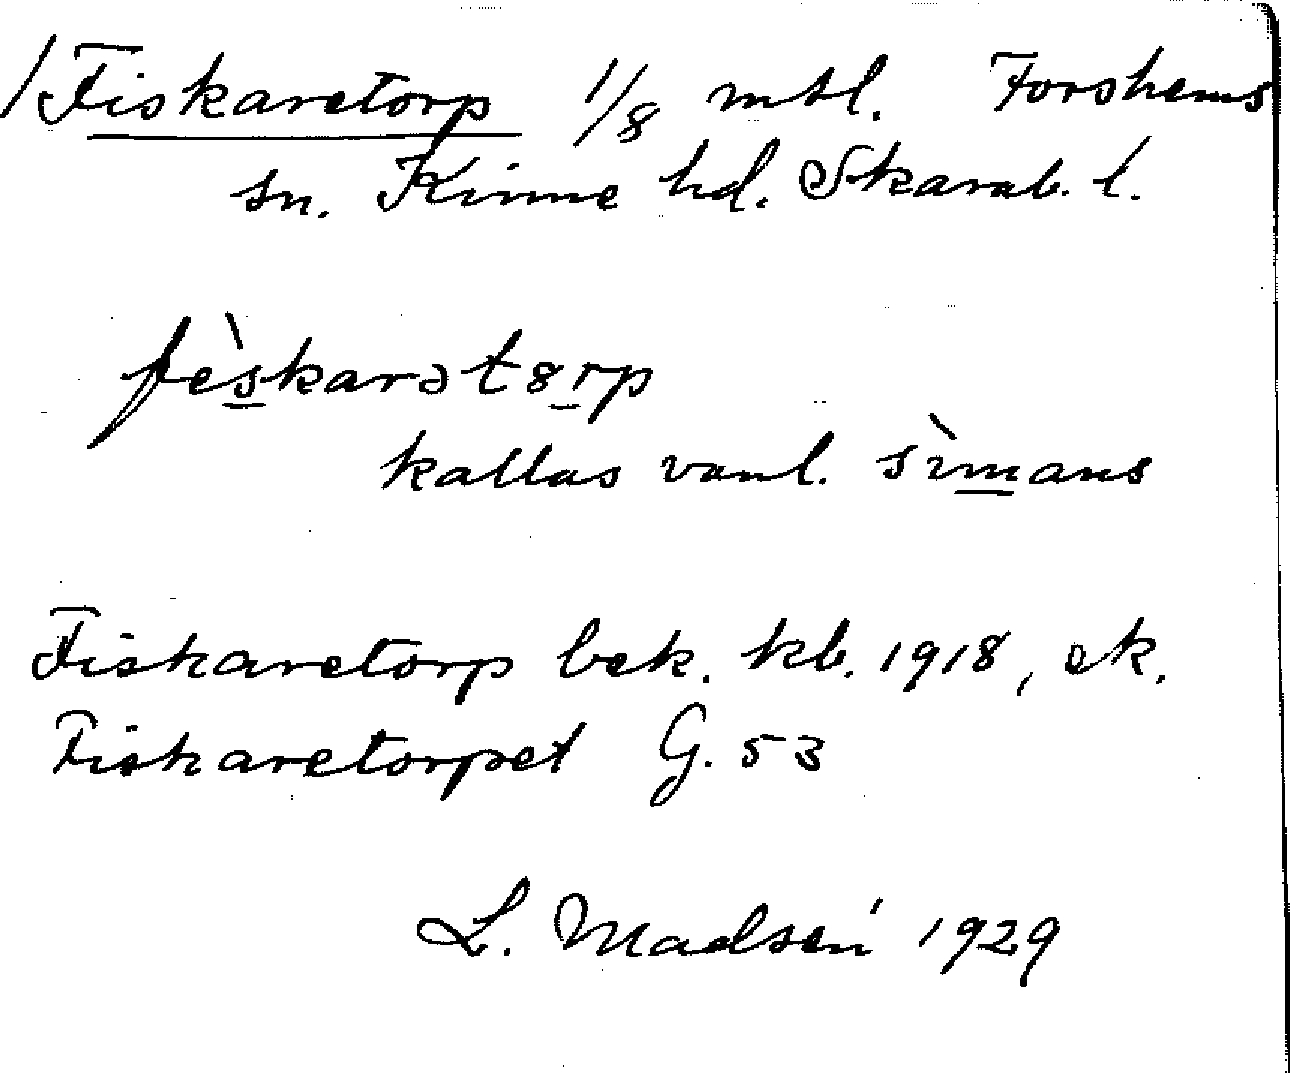 /Fiskaretorp 1/8 mtl. Forshems
sn. Kinne hd. Skarab. l.
fèskarət8rp
kallas vanl. sìmans
Fiskaretorp bek. kb. 1918, ek.
Fiskaretorpet G. 53
L. Madsén 1929